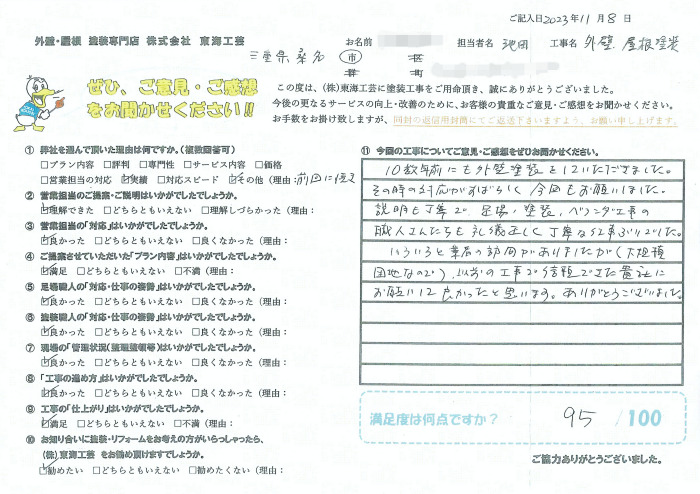 ご記入日2023年11月8日
外壁・屋根 塗装専門店 株式会社 東海工芸
お名前 担当者名 池田 工事名 外壁、屋根塗装
三重県桑名 市 区
郡 町
ぜひ、ご意見・ご感想
をお聞かせください!!
この度は、(株)東海工芸に塗装工事をご用命頂き、誠にありがとうございました。
今後の更なるサービスの向上・改善のために、お客様の貴重なご意見・ご感想をお聞かせください。
お手数をお掛け致しますが、同封の返信用封筒にてご返送下さいますよう、お願い申し上げます。
① 弊社を選んで頂いた理由は何ですか。(複数回答可)
□プラン内容 □評判 □専門性 □サービス内容 □価格
□営業担当の対応 ☑実績 □対応スピード ☑その他(理由:前回に続き
② 営業担当のご提案・ご説明はいかがでしたでしょうか。
☑理解できた □どちらともいえない □理解しづらかった(理由:
③ 営業担当の「対応」はいかがでしたでしょうか。
☑良かった □どちらともいえない □良くなかった(理由:
④ ご提案させていただいた「プラン内容」はいかがでしたでしょうか。
☑満足 □どちらともいえない □不満(理由:
⑤ 足場職人の「対応・仕事の姿勢」はいかがでしたでしょうか。
☑良かった □どちらともいえない □良くなかった(理由:
⑥ 塗装職人の「対応・仕事の姿勢」はいかがでしたでしょうか。
☑良かった □どちらともいえない □良くなかった(理由:
⑦ 現場の「管理状況(整理整頓等)はいかがでしたでしょうか。
☑良かった □どちらともいえない □良くなかった(理由:
⑧ 「工事の進め方」はいかがでしたでしょうか。
☑良かった □どちらともいえない □良くなかった(理由:
⑨ 工事の「仕上がり」はいかがでしたでしょうか。
☑満足 □どちらともいえない □不満(理由:
⑩ お知り合いに塗装・リフォームをお考えの方がいらっしゃったら、
(株)東海工芸 をお勧め頂けますでしょうか。
☑勧めたい □どちらともいえない □勧めたくない(理由:
⑪ 今回の工事についてご意見・ご感想をぜひお聞かせください。
10数年前にも外壁塗装をしていただきました。
その時の対応がすばらしく今回もお願いしました。
説明も丁寧で、足場、塗装、ベランダ工事の
職人さんたちも礼儀正しく丁寧な仕事ぶりでした。
いろいろと業者の訪問がありましたが(大規模
団地なので)、以前の工事で信頼できた貴社に
お願いして良かったと思います。ありがとうございました。
満足度は何点ですか? 95 /100
ご協力ありがとうございました。